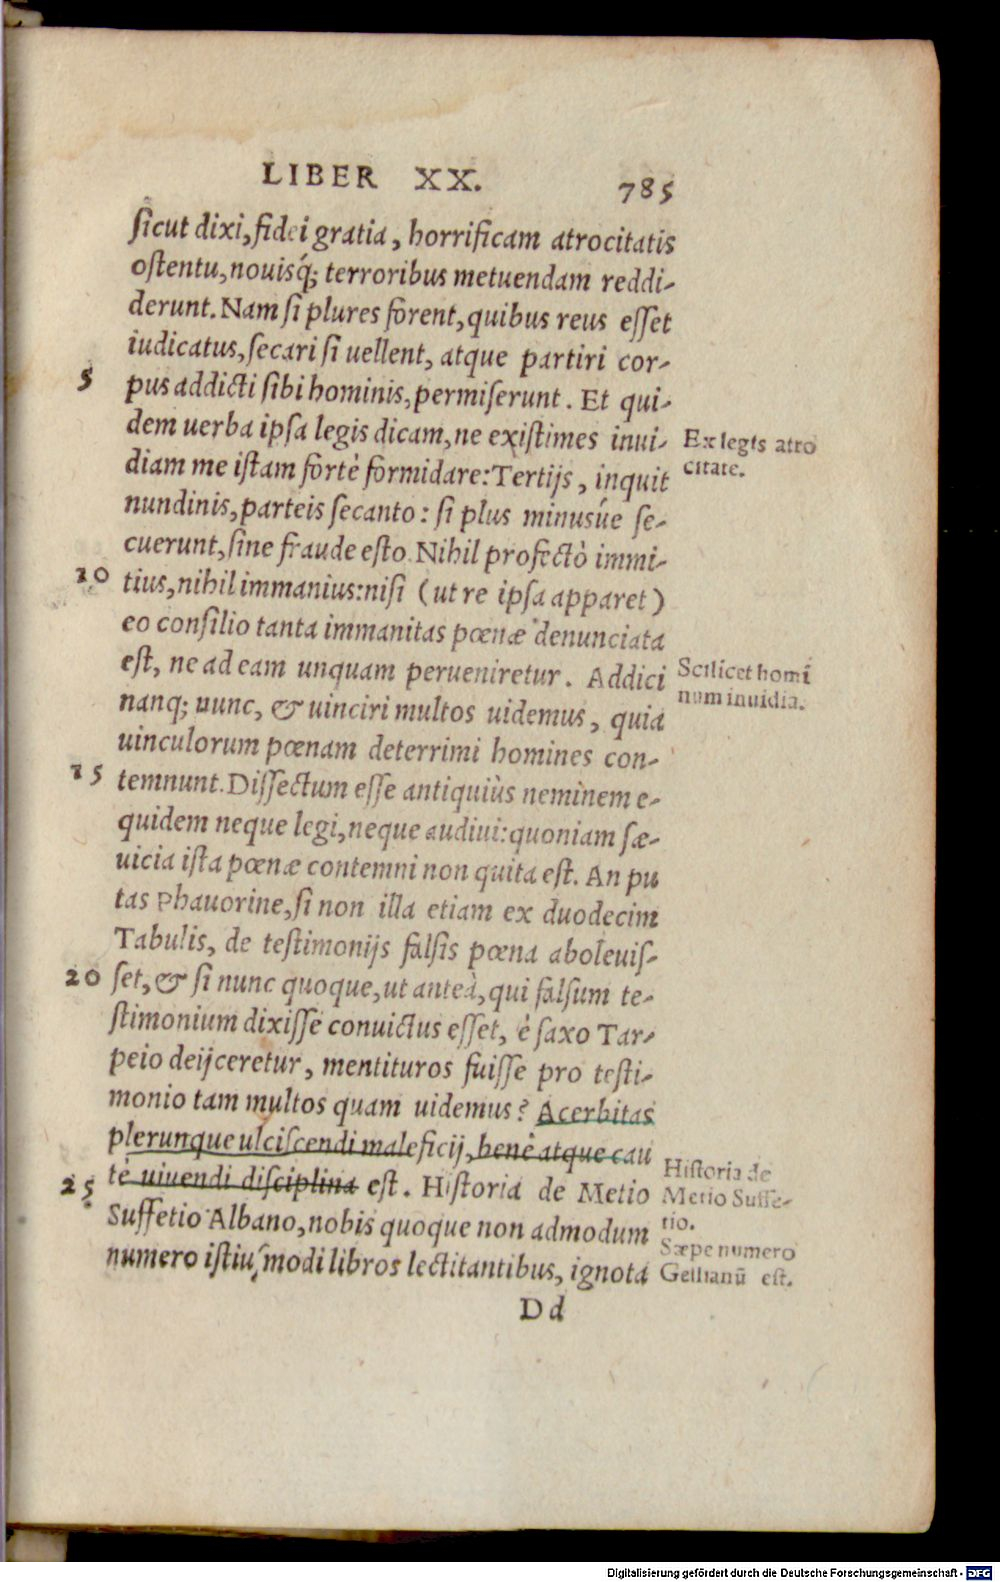 LIBER XX. 785
ſicut dixi, fidei gratia, horrificam atrocitatis
oſtentu, nouisq́; terroribus metuendam reddi-
derunt. Nam ſi plures forent, quibus reus eſſet
iudicatus, ſecari ſi uellent, atque partiri cor-
5 pus addicti ſibi hominis, permiſerunt. Et qui-
dem uerba ipſa legis dicam, ne exiſtimes inui-
diam me iſtam fortè formidare: Tertijs, inquit
nundinis, parteis ſecanto: ſi plus minusúe ſe-
cuerunt, ſine fraude eſto. Nihil profectò immi-
10 tius, nihil immanius: niſi (ut re ipſa apparet)
eo conſilio tanta immanitas pœnæ denunciata
eſt, ne ad eam unquam perueniretur. Addici
nanq; nunc, & uinciri multos uidemus, quia
uinculorum pœnam deterrimi homines con-
15 temnunt. Diſſectum eſſe antiquiùs neminem e-
quidem neque legi, neque audiui: quoniam ſæ-
uicia iſta pœnæ contemni non quita eſt. An pu
tas Phauorine, ſi non illa etiam ex duodecim
Tabulis, de teſtimonijs falſis pœna aboleuiſ-
20 ſet, & ſi nunc quoque, ut anteà, qui falſum te-
ſtimonium dixiſſe conuictus eſſet, è ſaxo Tar-
peio deijceretur, mentituros fuiſſe pro teſti-
monio tam multos quam uidemus? Acerbitas
plerunque ulciſcendi maleficij, benè atque cau
25 tè uiuendi diſciplina eſt. Hiſtoria de Metio
Suffetio Albano, nobis quoque non admodum
numero iſtiuſmodi libros lectitantibus, ignota
Dd
Ex legis atro
citate.
Scilicet homi
num inuidia.
Hiſtoria de
Metio Suffe-
tio.
Sæpe numero
Gellianū eſt.
Digitalisierung gefördert durch die Deutsche Forschungsgemeinschaft - DFG